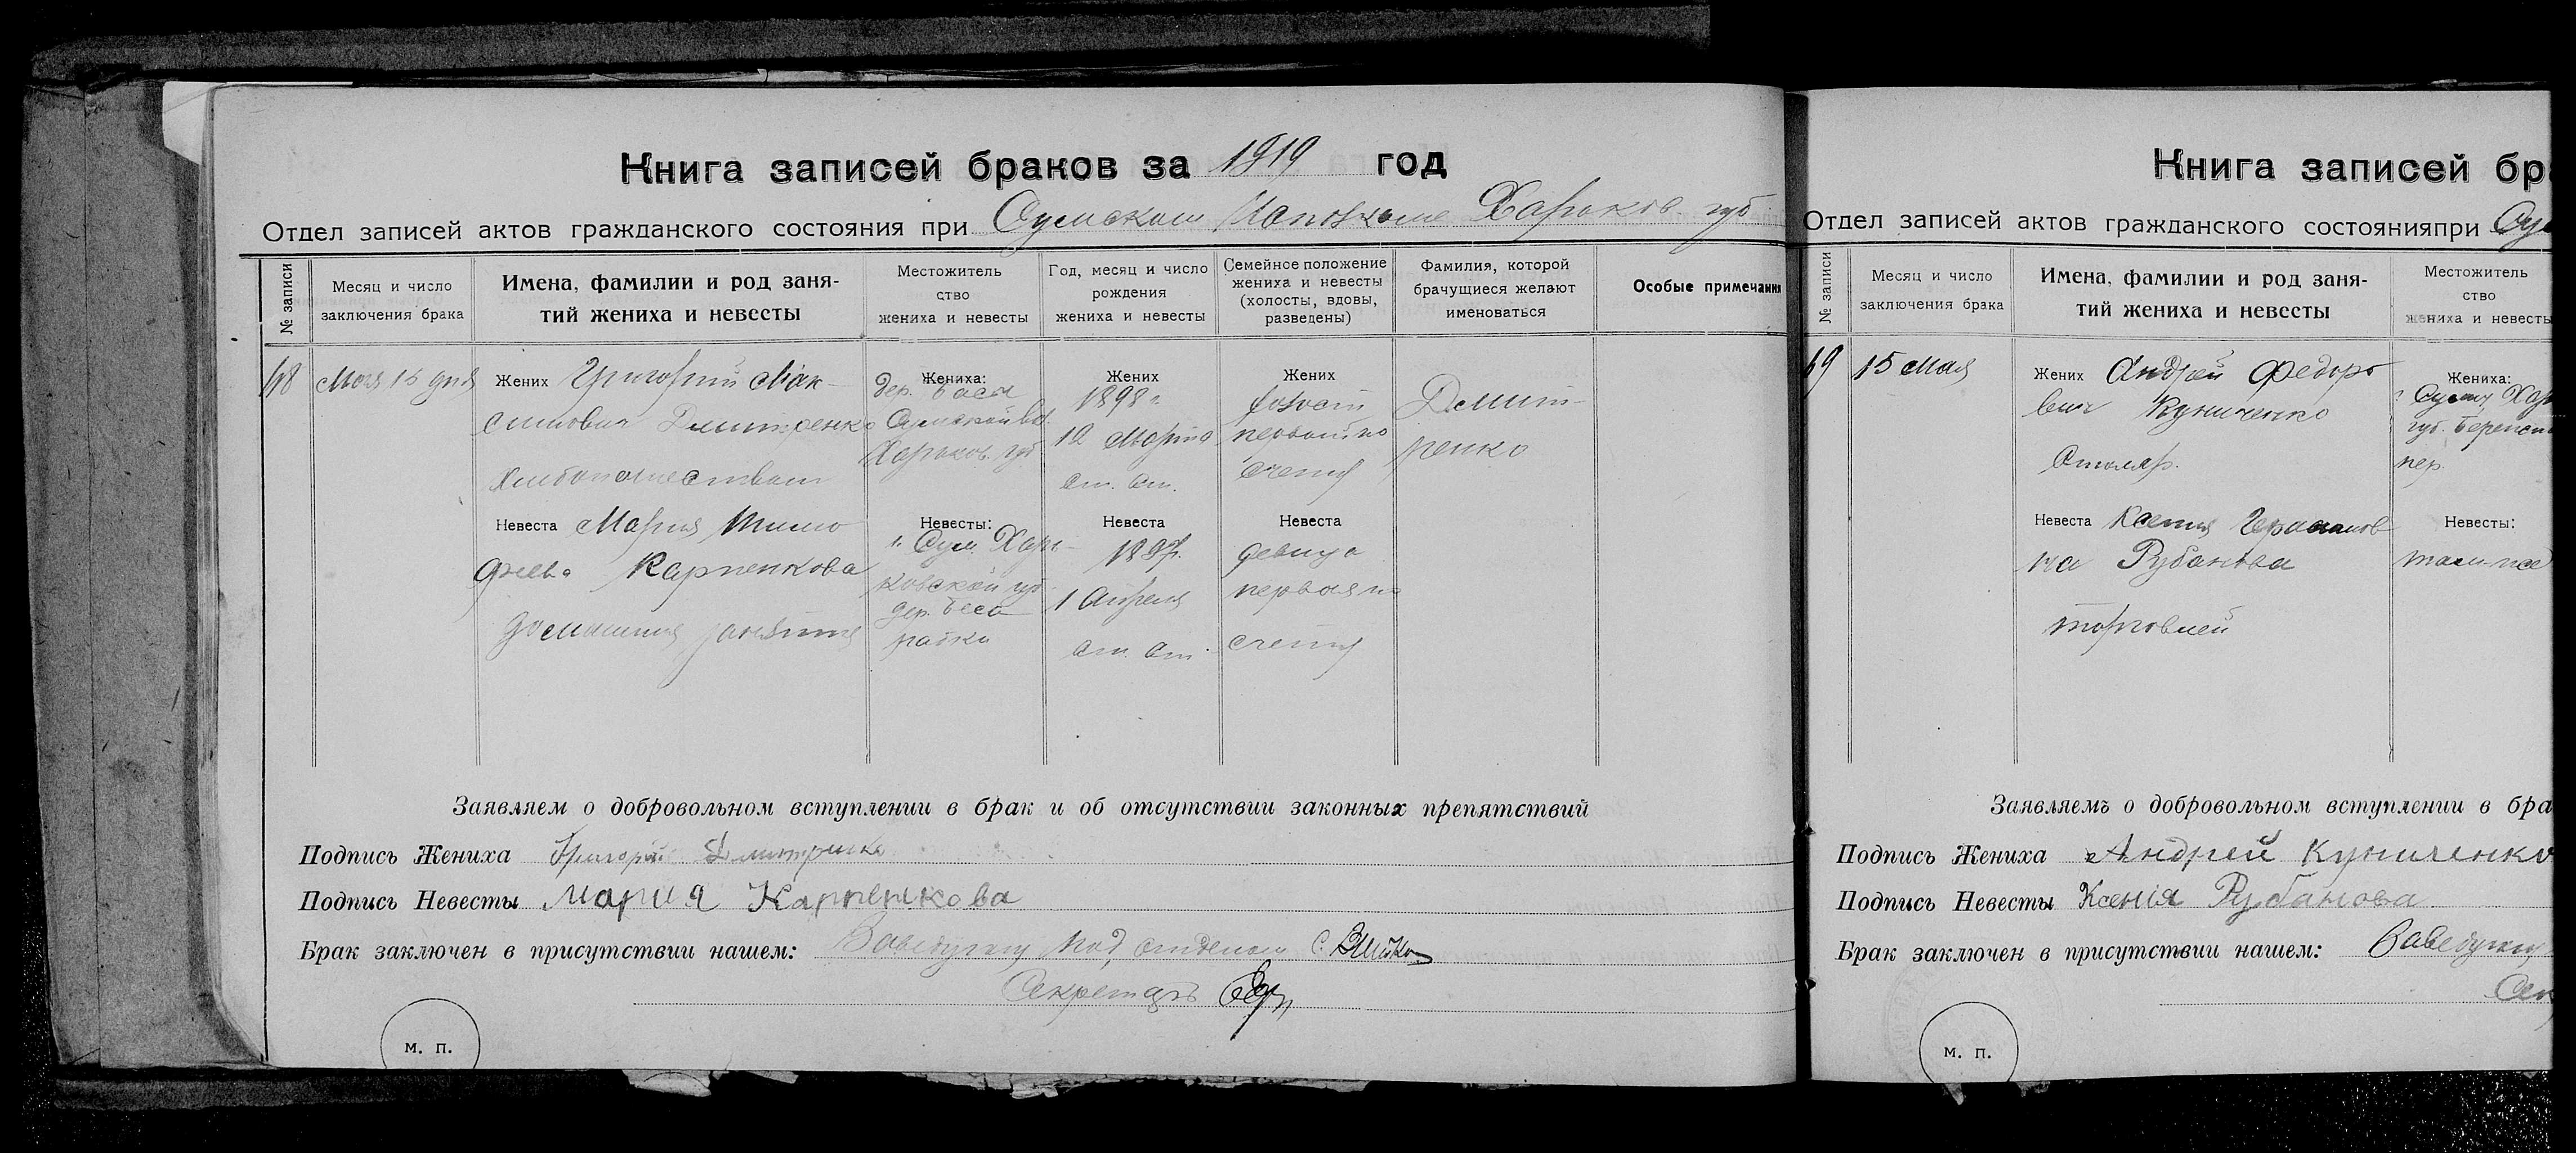 Книга записей браков за 1919 год
Отдел записей актов гражданского состояния при Сумском Исполкоме Харьков. губ
№ записи
Месяц и число
заключения брака
Имена, фамилии и род заня-
тий жениха и невесты
Местожитель
ство
жениха и невесты
Год, месяц и число
рождения
жениха и невесты
Семейное положение
жениха и невесты
(холосты, вдовы,
разведены)
Фамилия, которой
брачущиеся желают
именоваться
Особые примечания
68
Мая 15 дня
Жених Григорий Мак-
симович Дмитренко
Хлебопашеством
Невеста Мария Тимо
феева Карпенкова
домашния занятия
Жениха:
дер. Басы
Сумской вол.
Харьков. губ
Невесты:
г. Сум. Харь-
ковской губ.
дер. Баса
Жених
1898 г.
12 Марта
ст. ст.
Невеста
1897.
1 Апреля
ст. ст.
Жених
холост
первый по
счету
Невеста
девица
первая по
счету
Дмит-
ренко
Заявляем о добровольном вступлении в брак и об отсутствии законных препятствий
Подпись Жениха Григорий Дмитренко
Подпись Невесты Мария Карпенкова
Брак заключен в присутствии нашем: Заведующ под, отделом
Секретарь
м. п.
Книга записей бра
Отдел записей актов гражданского состоянияпри Сум
№ записи
Месяц и число
заключения брака
Имена, фамилии и род заня-
тий жениха и невесты
Местожитель
ство
жениха и невесты
69
15 Мая
Жених Андрей Федоро
вич Куниченко
Столяр.
Невеста Ксения Герасимов
на Рубанова
торговлей
Жениха:
г. Сумы, Харь
губ.
пер.
Невесты:
там-же
Заявляемъ о добровольном вступлении в бра
Подпись Жениха Андрей Куниченко
Подпись Невесты Ксения Рубанова
Брак заключен в присутствии нашем: Заведующ
Сек
м. п.